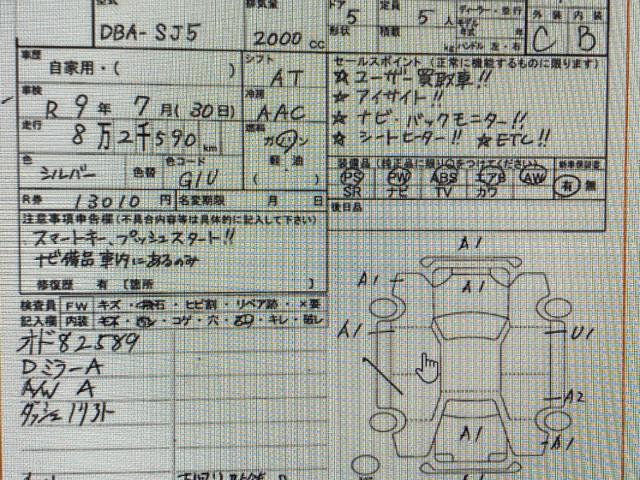 型式 排気量 ドア 定員 ディーラー・並行
DBA-SJ5 2000 cc 5 5人 外装 内装
形状 積載 kg ハンドル 左・右 C B
車歴 自家用・( ) シフト AT
セールスポイント(正常に機能するものに限ります)
☆ユーザー買取車!!
車検 R 9年 7月(30日) 冷房 AAC
☆アイサイト!!
☆ナビ・バックモニター!!
走行 8万2千590 km 燃料 ガソリン
☆シートヒーター!! ☆ETC!!
軽油
色 シルバー 色替 色コード G1U ( )
装備品(純正品に限り○をつけてください) 新車保証書
PS PW ABS エアB AW 有 無
SR ナビ TV カワ
R券 13010円 名変期限 月 日
後日品
注意事項申告欄(不具合内容等は具体的に記入して下さい)
スマートキー、プッシュスタート!!
ナビ備品車内にあるのみ
修復歴 有 〔箇所 〕
検査員 FW キズ・飛石・ヒビ割・リペア跡・×要
記入欄 内装 コゲ・穴・キレ・破レ
オド82589
Dミラー A
A/W A
A1
A1 A1
A1 U1
A2
A1 A1